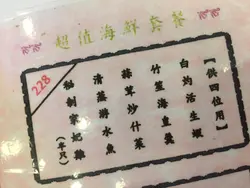 超值海鮮套餐
228
【供四位用】
白灼活生蝦
竹笙海皇羹
蒜茸炒什菜
清蒸游水魚
秘制家妃雞(半只)